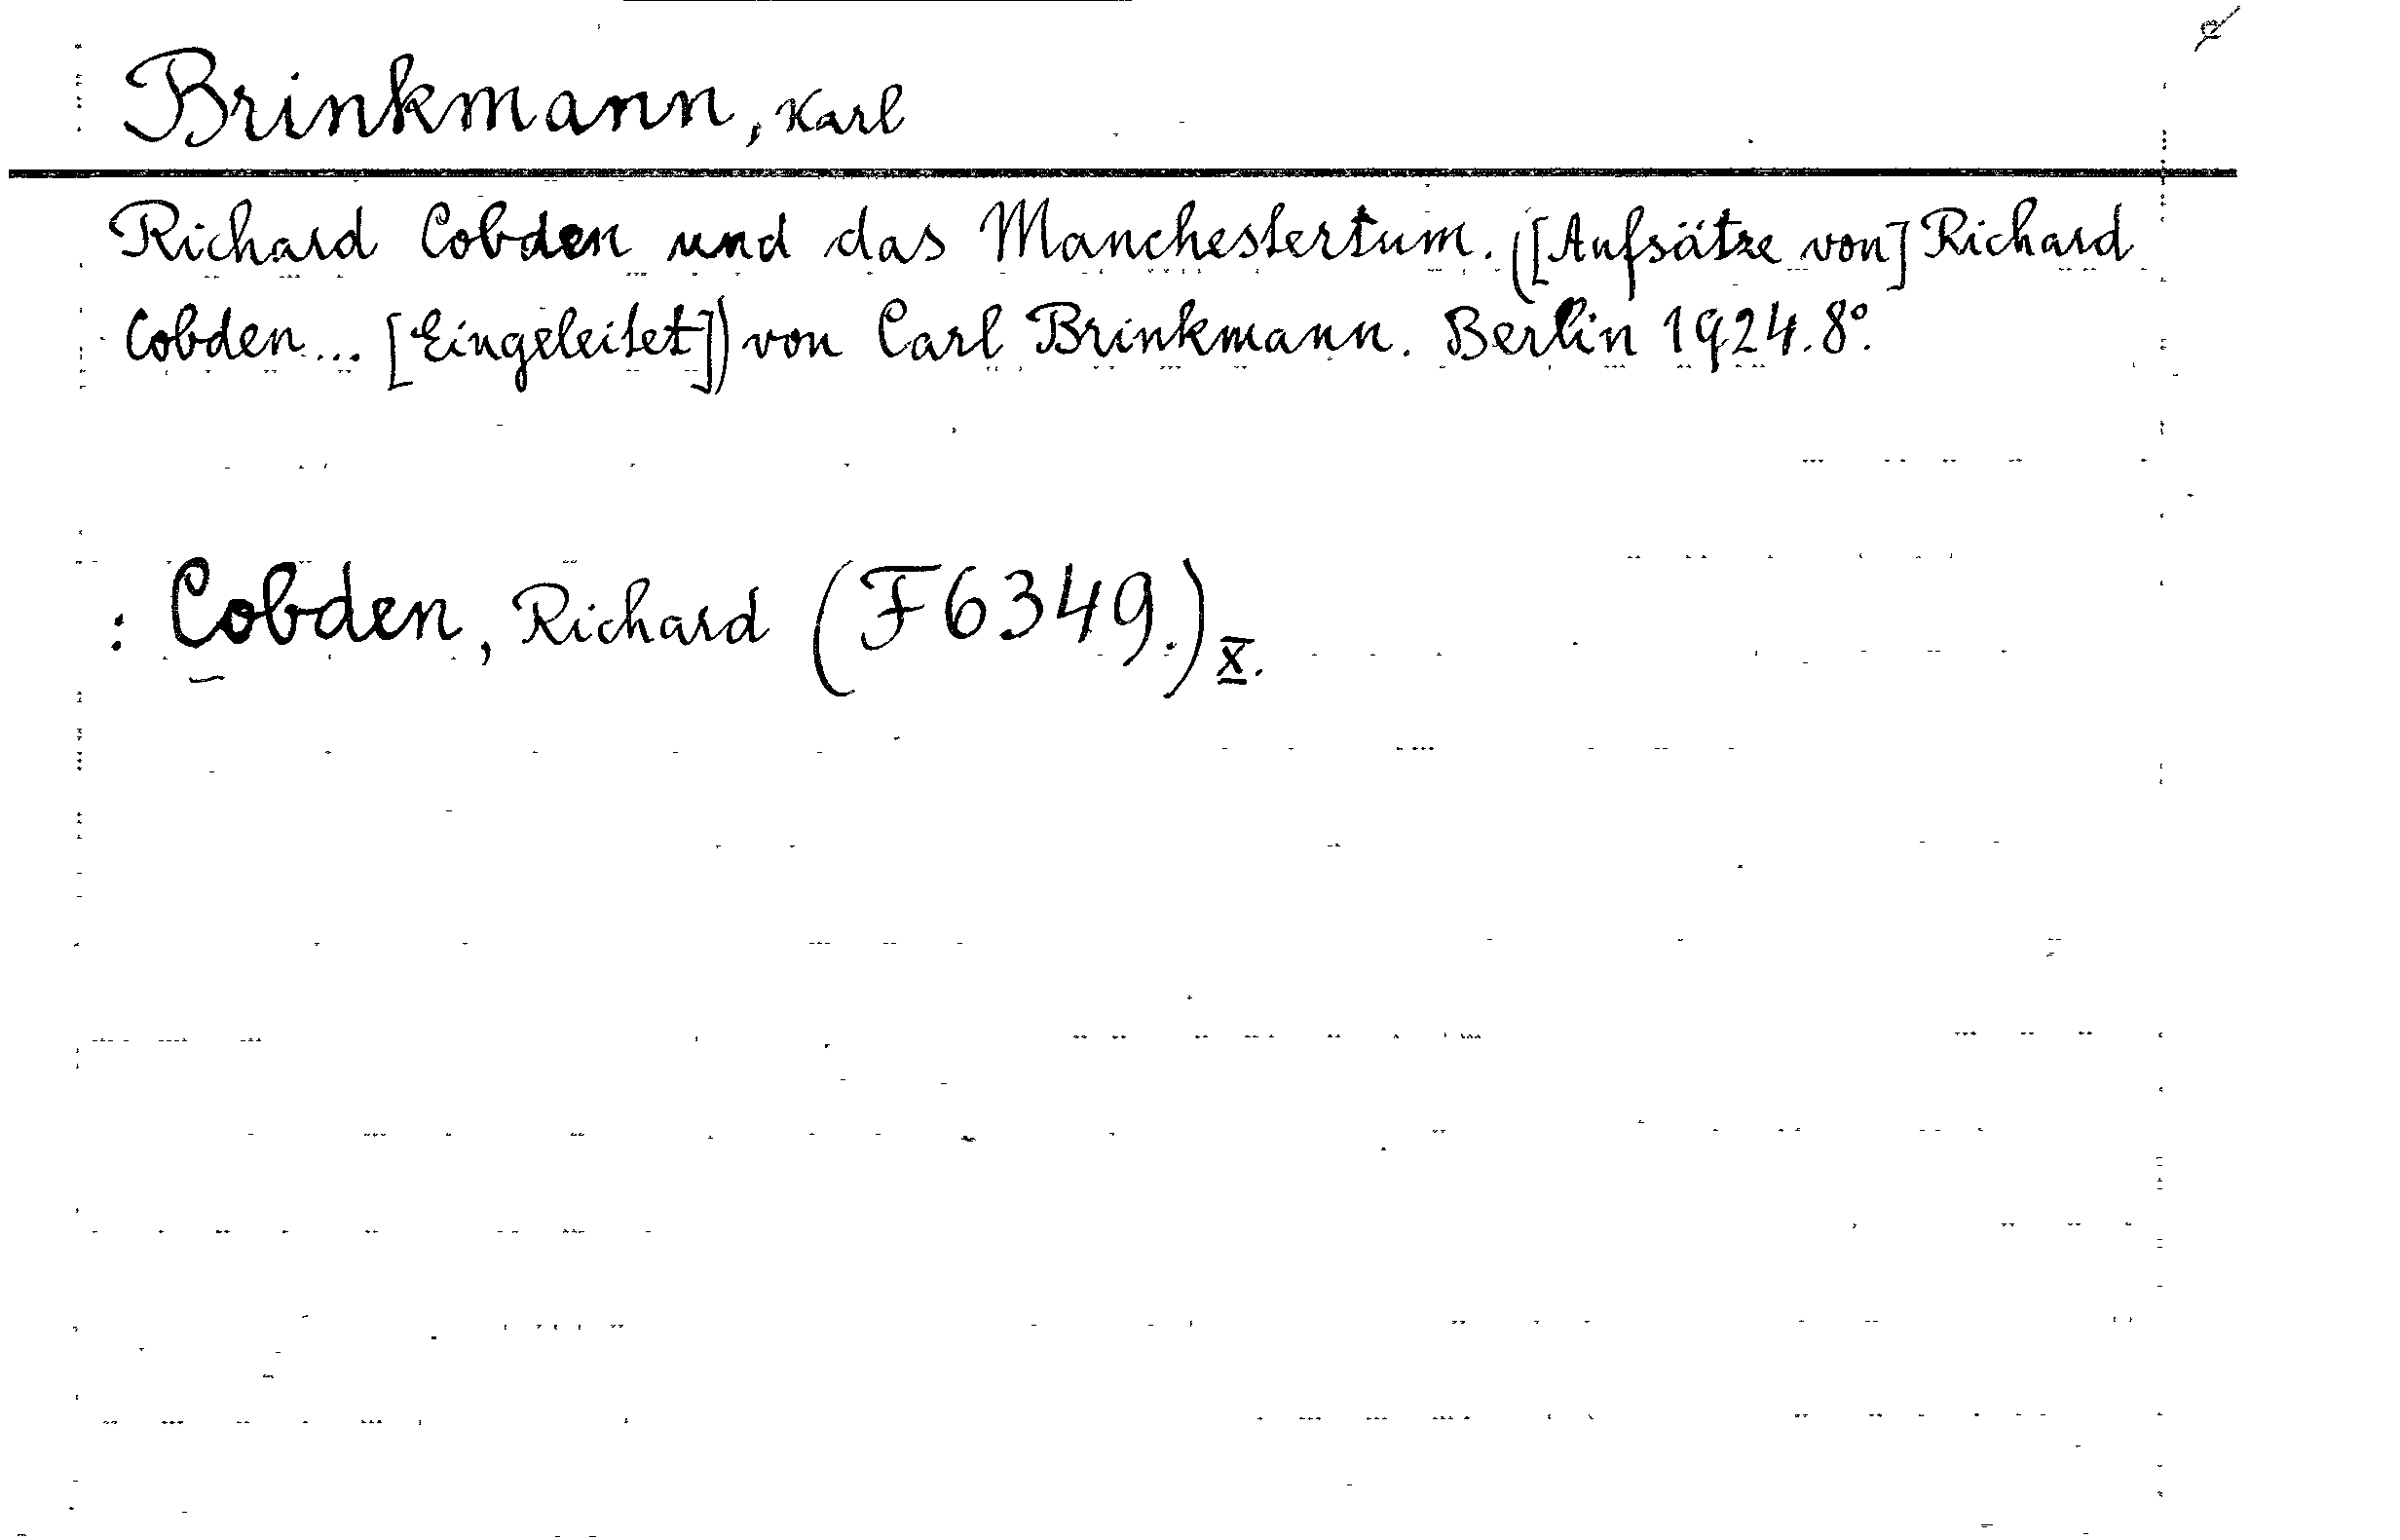 Brinkmann, Karl
Richard Cobden und das Manchestertum. ([Aufsätze von] Richard
Cobden... [Eingeleitet]) von Carl Brinkmann. Berlin 1924. 8°.
: Cobden, Richard (F6349.) X.